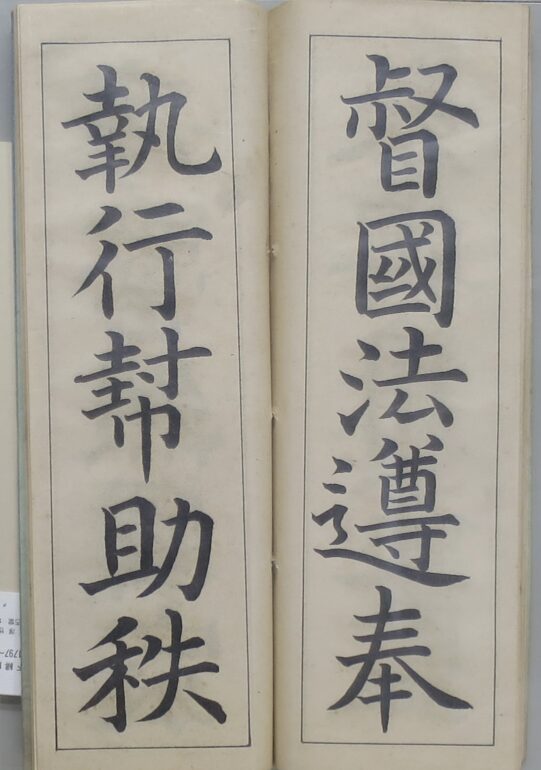 督國法遵奉
執行幇助秩